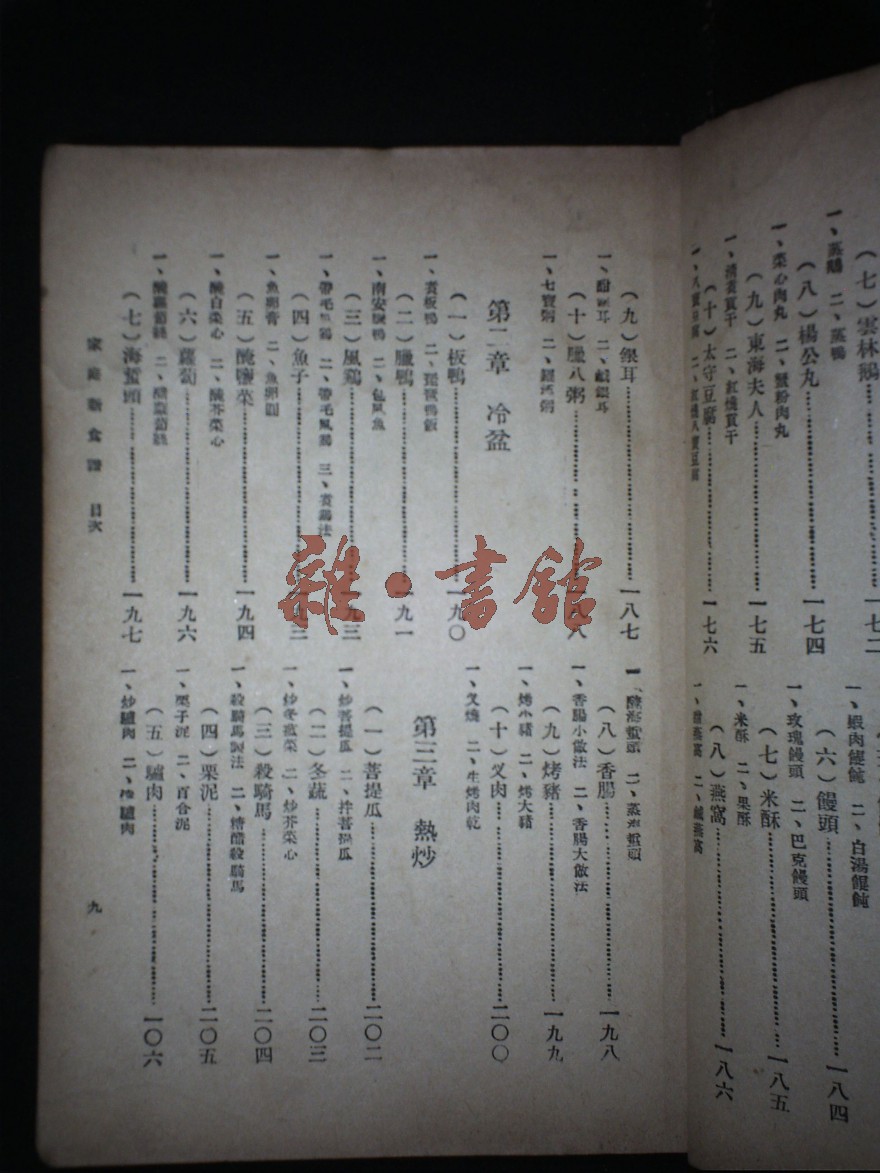 (七)雲林鵝……一七二
一、蒸鵝 二、蒸鴨
(八)楊公丸……一七四
一、菜心肉丸 二、蟹粉肉丸
(九)東海夫人……一七五
一、清煮貢干 二、紅燒貢干
(十)太守豆腐……一七六
一、八寶豆腐 二、紅燒八寶豆腐
一、蝦肉餛飩 二、白湯餛飩
(六)饅頭……一八四
一、玫瑰饅頭 二、巴克饅頭
(七)米酥……一八五
一、米酥 二、果酥
(八)燕窩……一八六
一、甜燕窩 二、鹹燕窩
(九)銀耳……一八七
一、甜銀耳 二、鹹銀耳
(十)臘八粥……一八八
一、七寶粥
第二章 冷盆
(一)板鴨……一九〇
一、煮板鴨
(二)臘鴨……一九一
一、南安臘鴨
(三)風鷄……一九三
一、帶毛風鷄 三、煮鷄法
(四)魚子……一九三
一、魚卵膏
(五)醃鹽菜……一九四
一、醃白菜心 二、醃芥菜心
(六)蘿蔔……一九六
一、醃蘿蔔絲
(七)海蜇頭……一九七
海蜇頭 二、蒸海蜇頭
(八)香腸……一九八
一、香腸小做法 二、香腸大做法
(九)烤豬……一九九
一、烤小豬 二、烤大豬
(十)叉肉……二〇〇
一、叉燒 二、生烤肉乾
第三章 熱炒
(一)菩提瓜……二〇二
一、炒菩提瓜 二、拌菩提瓜
(二)冬蔬……二〇三
一、炒冬蔬菜 二、炒芥菜心
(三)殺騎馬……二〇四
一、殺騎馬製法 二、糖醋殺騎馬
(四)栗泥……二〇五
一、栗子泥 二、百合泥
(五)驢肉……二〇六
一、炒驢肉 二、驢肉
家庭新食譜 目次
九
雜·書館